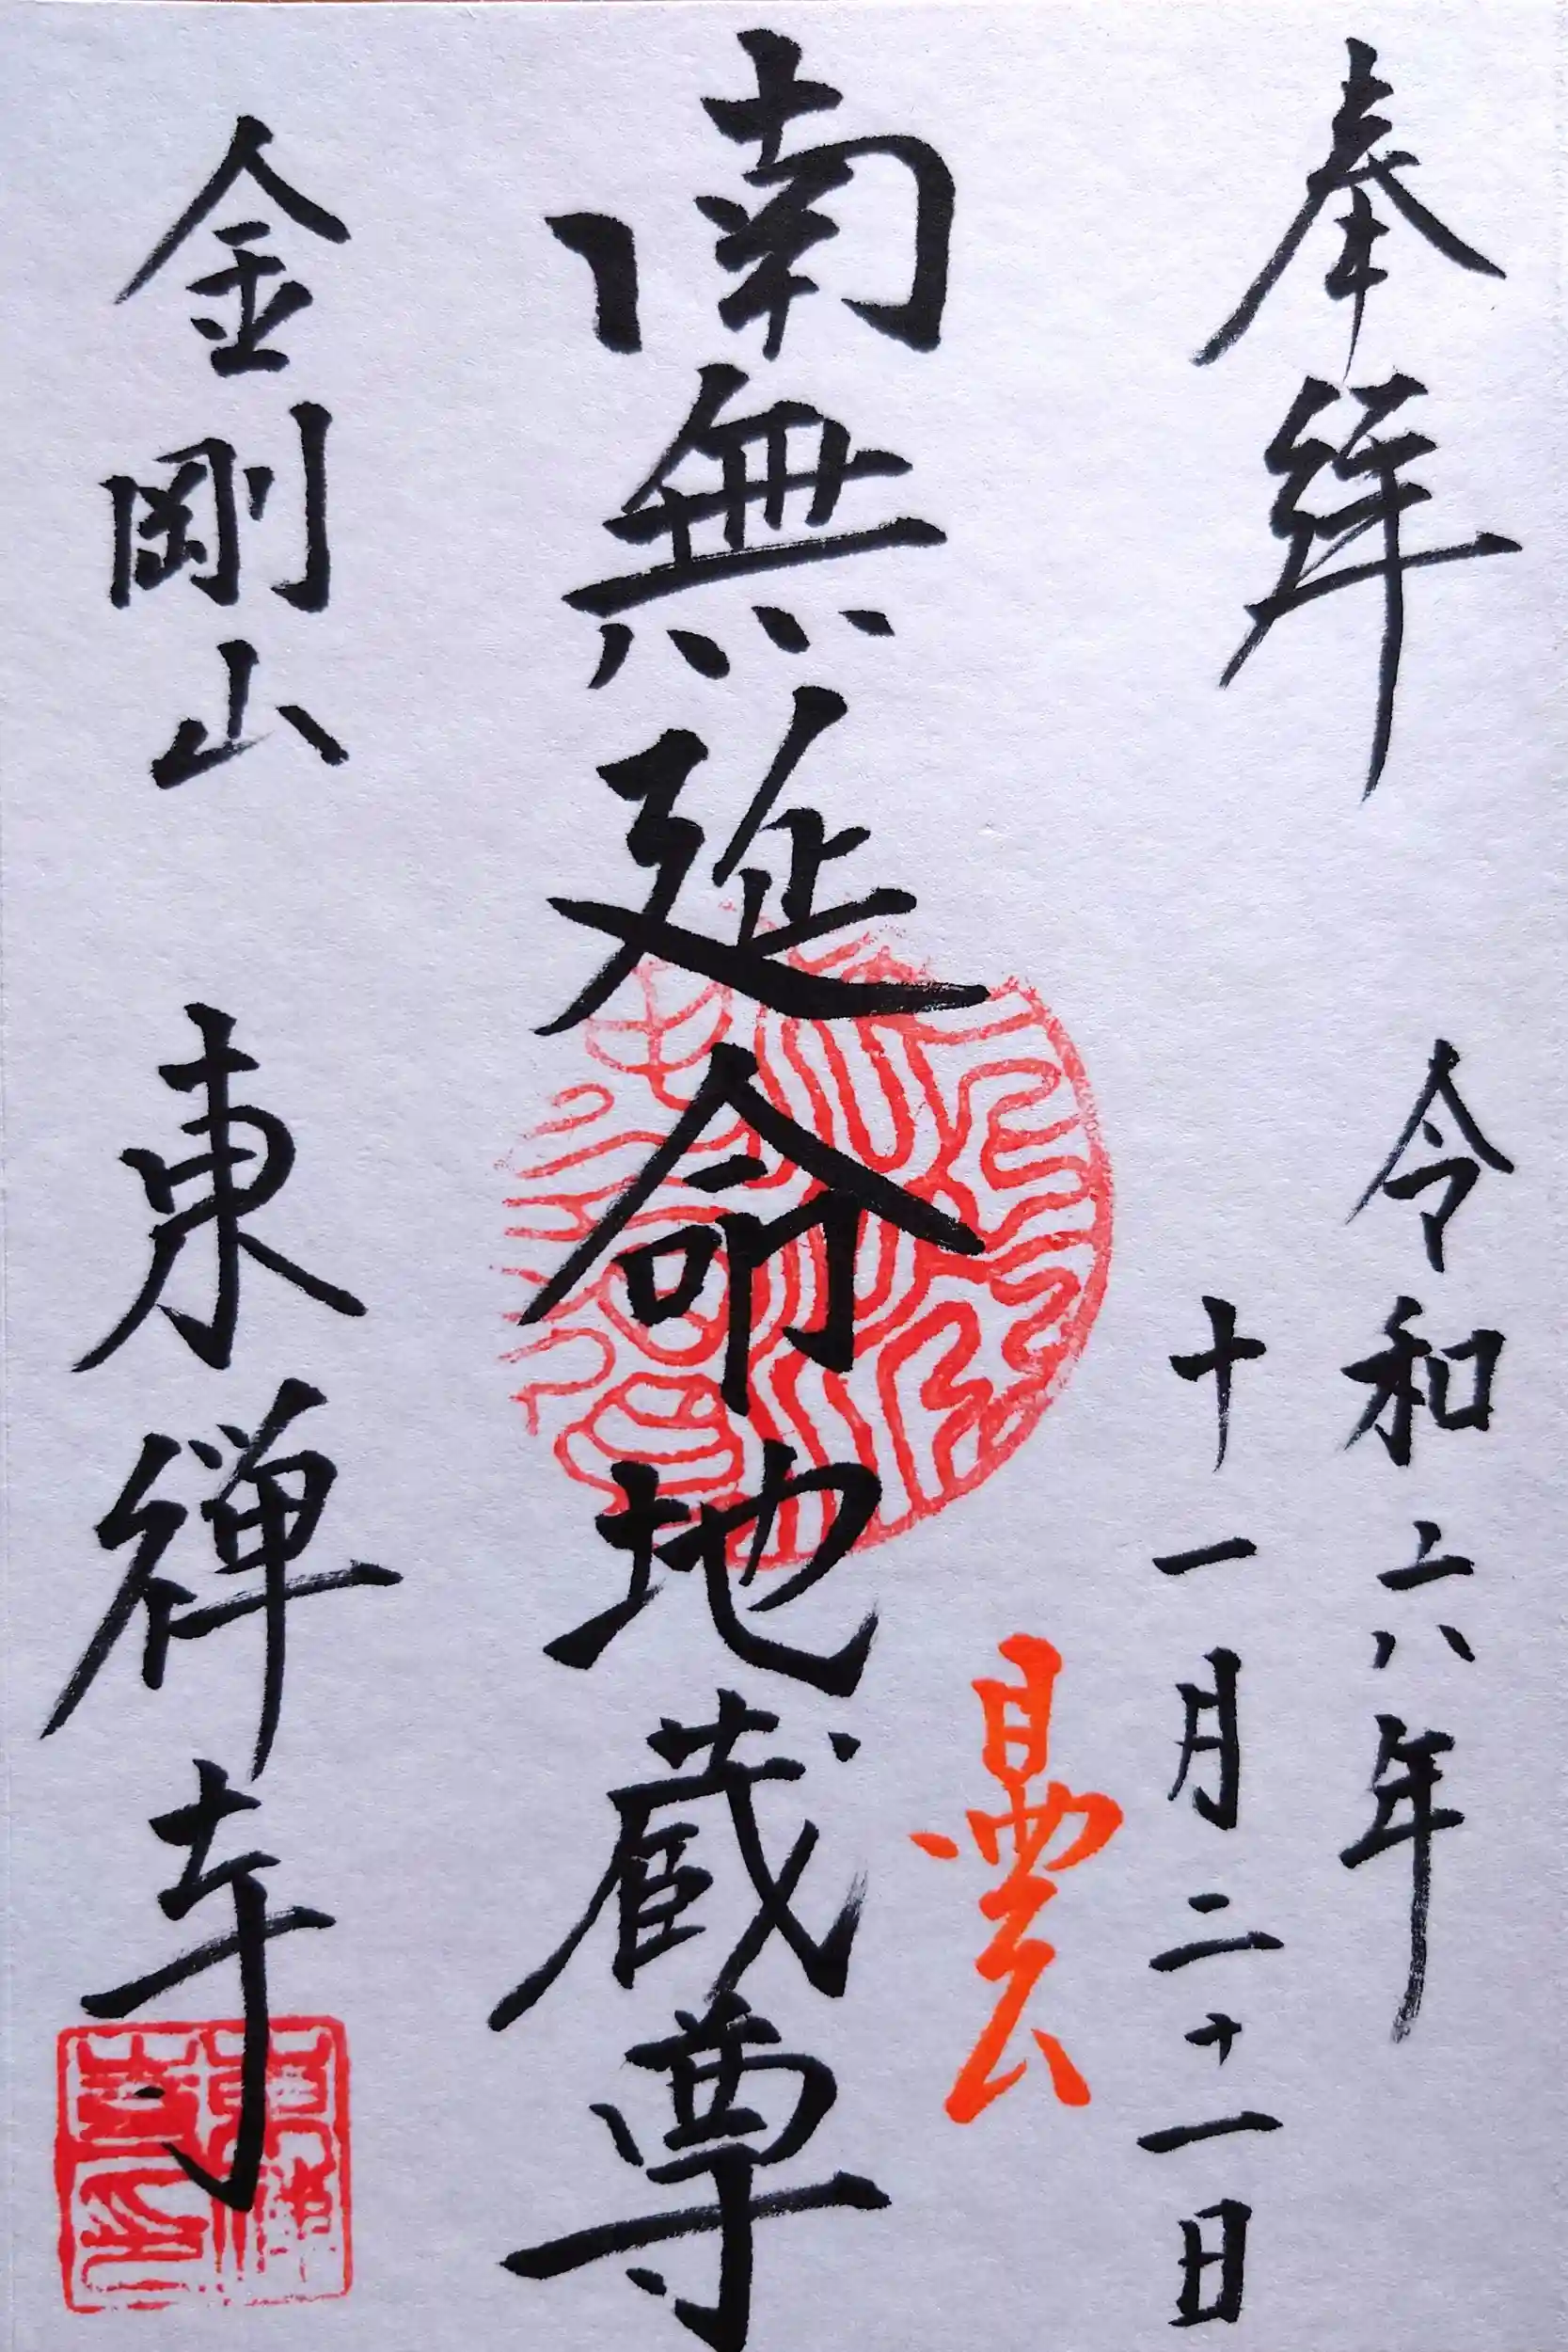 奉拝
令和六年
十一月二十一日
曇
南無延命地蔵尊
金剛山　東禅寺